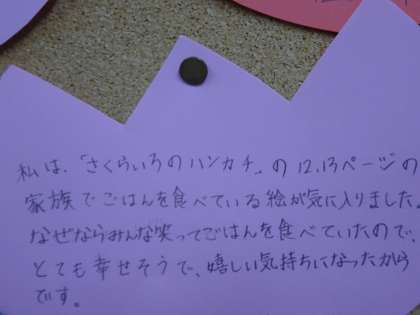 私は、「さくらいろのハンカチ」の12,13ページの
家族でごはんを食べている絵が気に入りました。
なぜならみんな笑ってごはんを食べていたので、
とても幸せそうで、嬉しい気持ちになったから
です。